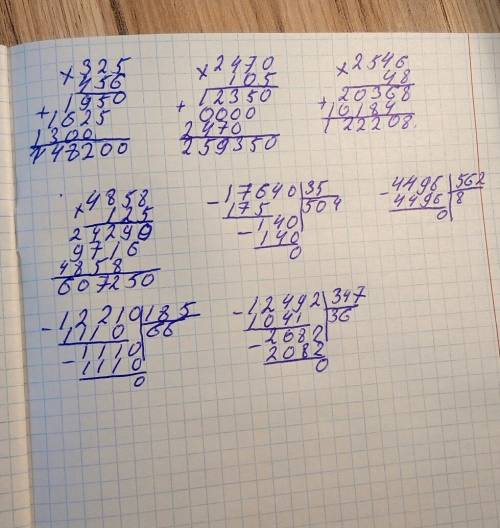 × 325
456
1950
+ 1625
1300
148200
× 2470
105
12350
+ 0000
2470
259350
× 2546
48
20368
+ 10184
122208.
× 4858
125
24290
9716
4858
607250
- 17640 | 35
175 | 504
- 140
140
0
- 4496 | 562
4496 | 8
0
- 12210 | 185
1110 | 66
- 1110
1110
0
- 12492 | 347
1041 | 36
- 2082
2082
0